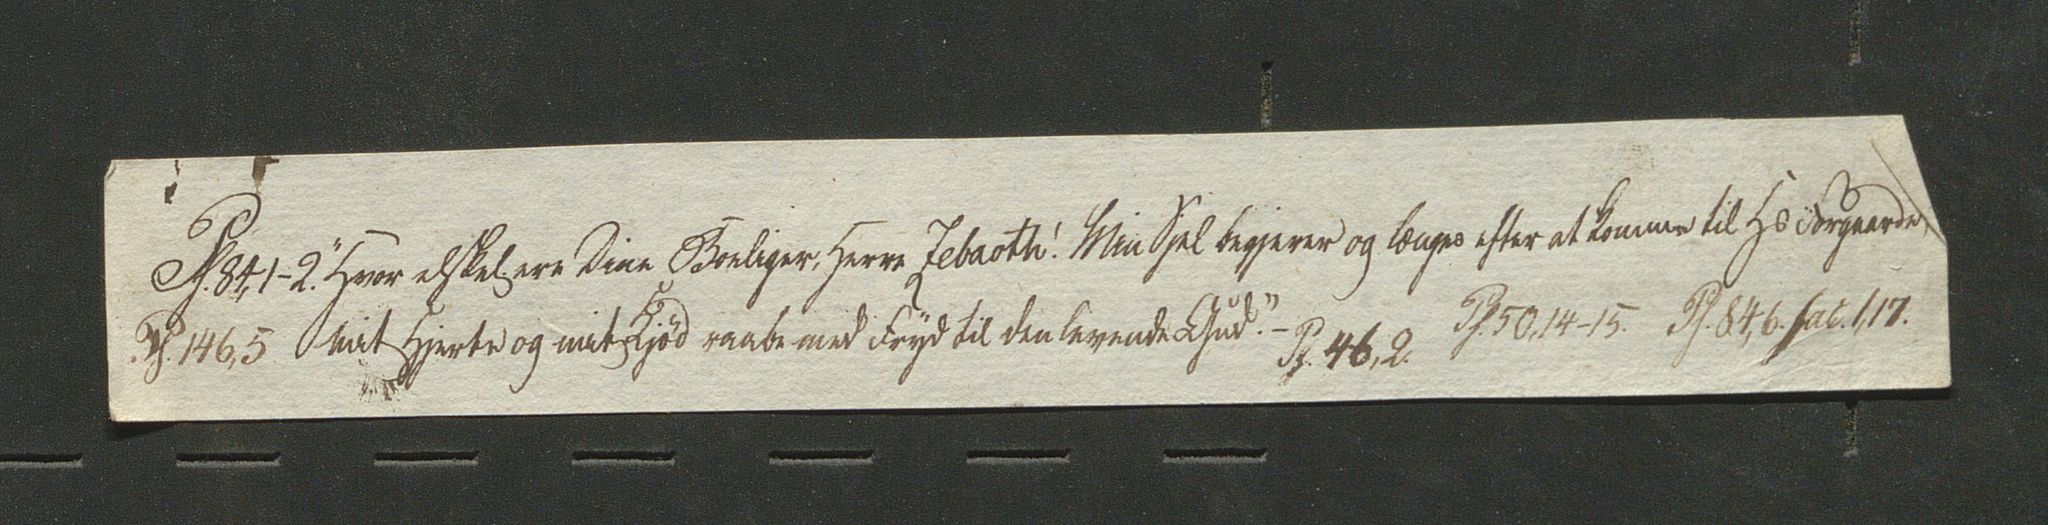 Ps. 84, 1-2. "Hvor elskel. ere Dine Boeliger, Herre Zebaoth! Min Sjel begjerer og længes efter at komme til Hs Forgaarde,
Ps. 146,5 mit Hjerte og mit Kjød raabe med Fryd til den levende Gud." - Ps. 46,2. Ps. 50,14-15. Ps. 84,6. Jac. 1,17.